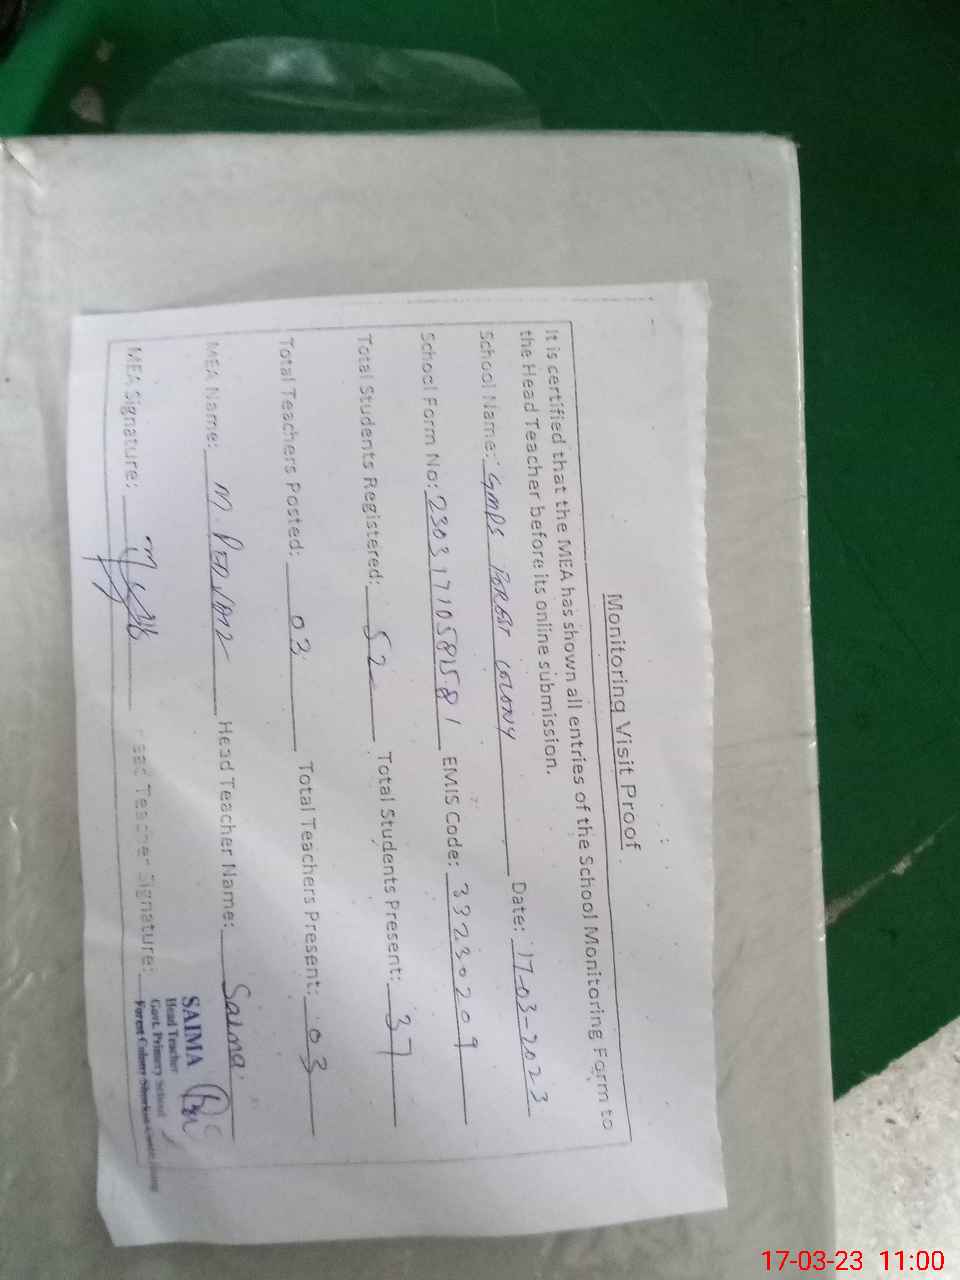 Monitoring Visit Proof
It is certified that the MEA has shown all entries of the School Monitoring Form to
the Head Teacher before its online submission.
School Name: GMPS FOREST COLONY Date: 17-03-2023
School Form No: EMIS Code: 33230209
Total Students Registered: 52 Total Students Present: 37
Total Teachers Posted: 03 Total Teachers Present: 03
MEA Name: M. Head Teacher Name: Saima
MEA Signature: Head Teacher Signature:
SAIMA
Head Teacher
Govt. Primary School
Forest Colony
17-03-23 11:00